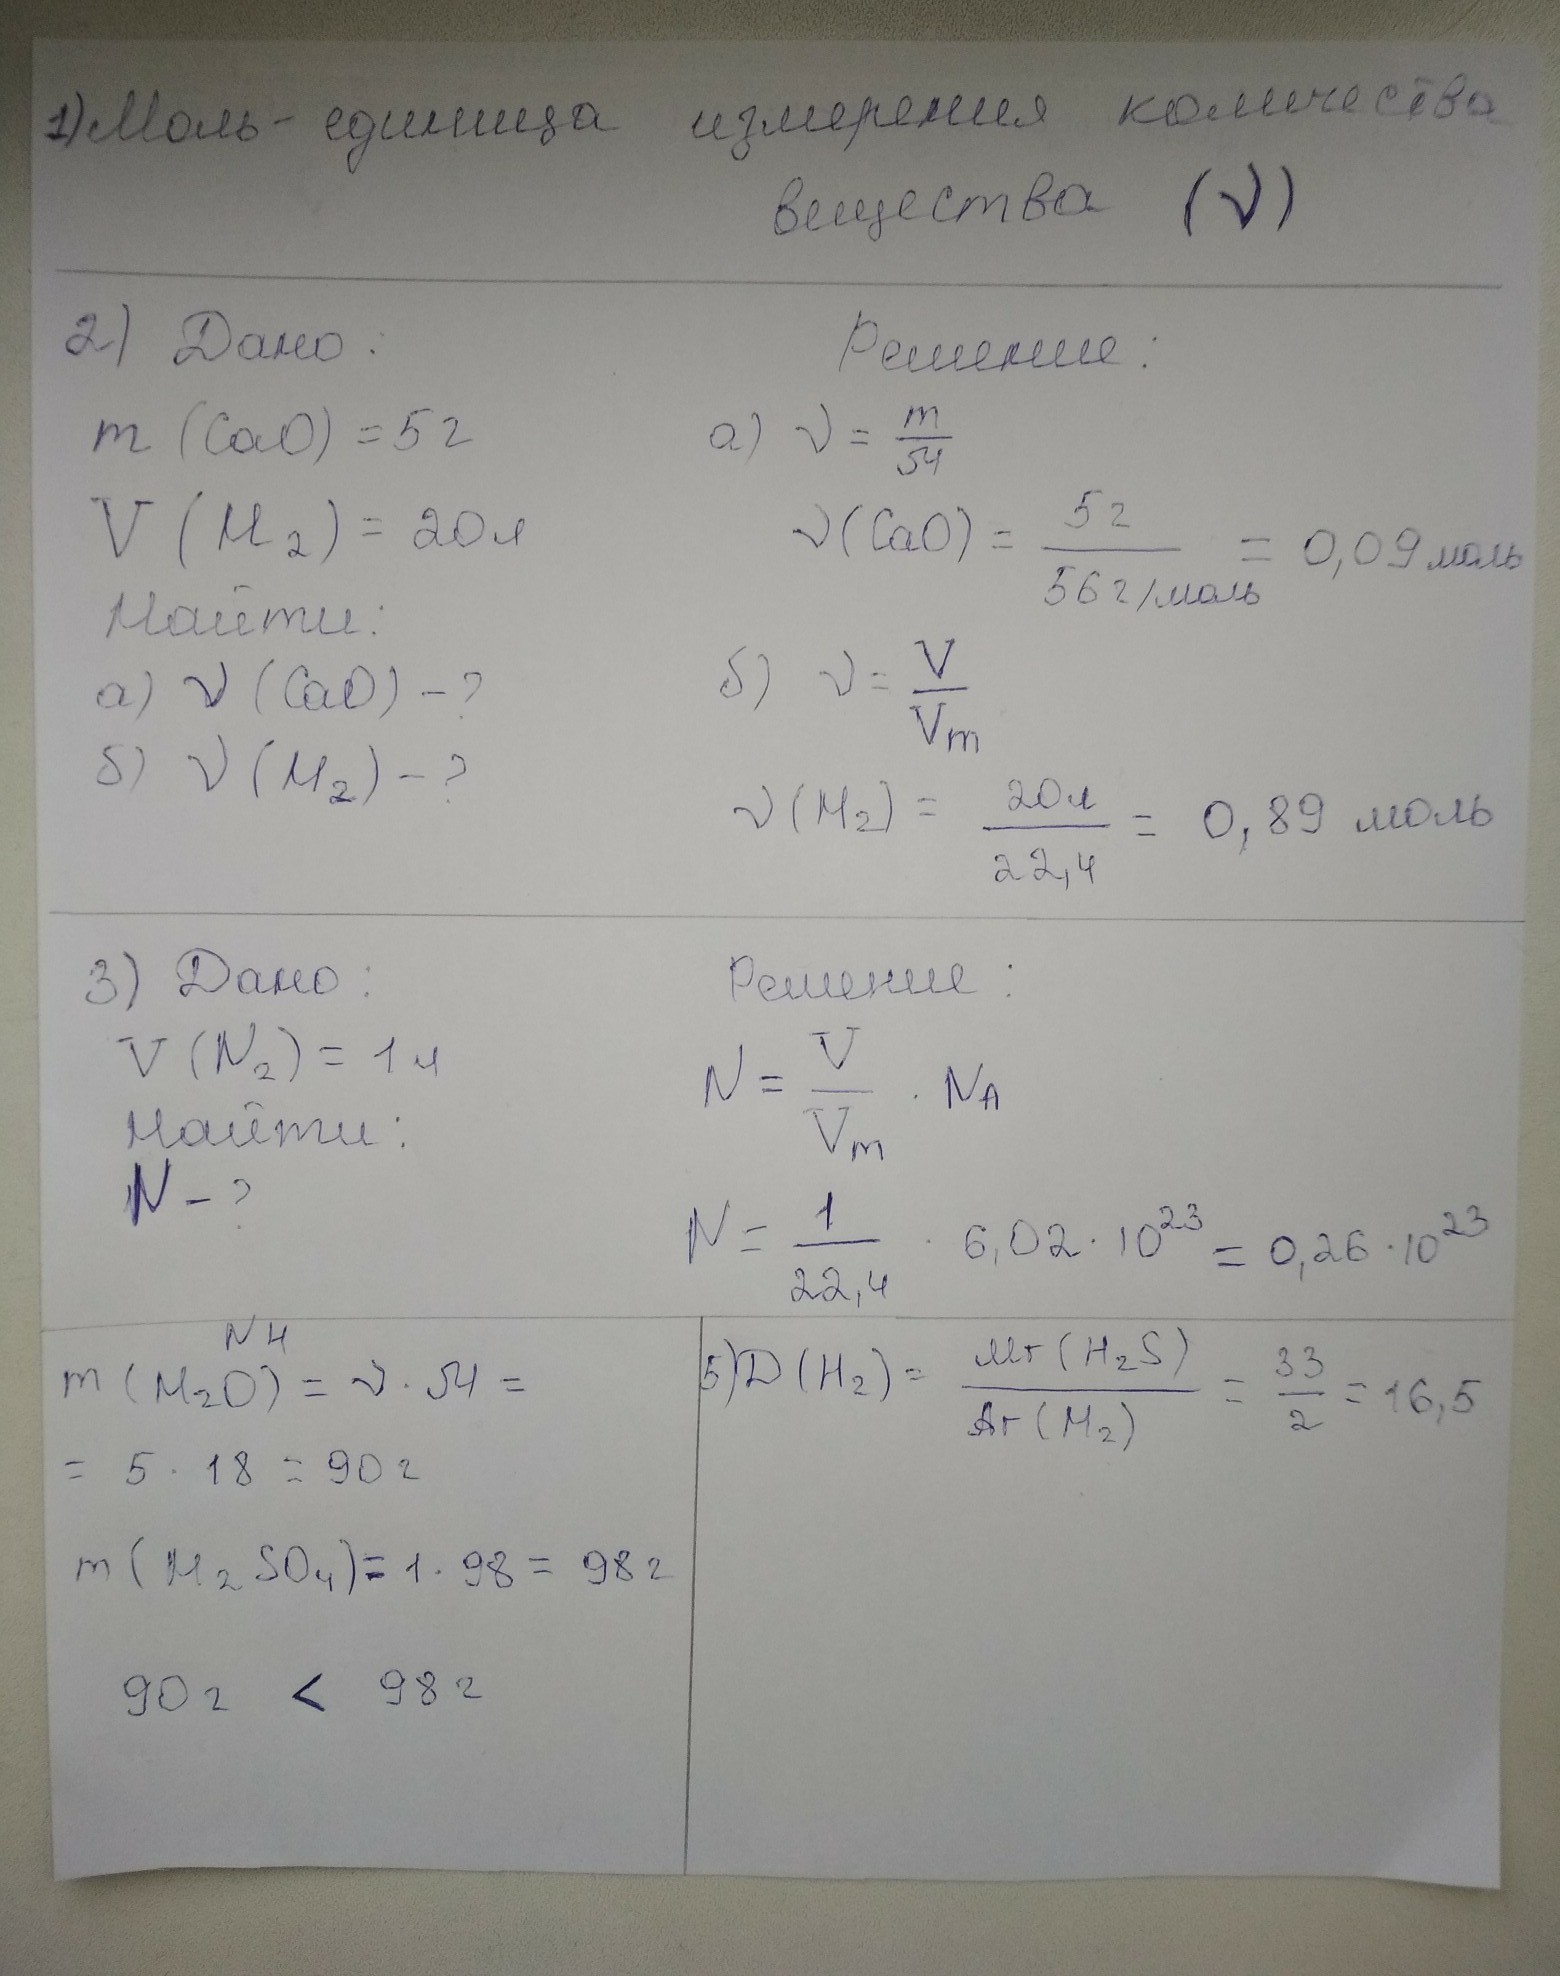 1) Моль - единица измерения количества
вещества (ν)
2) Дано:
m (CaO) = 5 г
V (H₂) = 20 л
Найти:
а) ν (CaO) - ?
б) ν (H₂) - ?
Решение:
а) ν = m/M
ν (CaO) = 5 г / 56 г/моль = 0,09 моль
б) ν = V/Vm
ν (H₂) = 20 л / 22,4 = 0,89 моль
3) Дано:
V (N₂) = 1 л
Найти:
N - ?
Решение:
N = V/Vm · NA
N = 1/22,4 · 6,02 · 10²³ = 0,26 · 10²³
N 4
m (H₂O) = ν · M =
= 5 · 18 = 90 г
m (H₂SO₄) = 1 · 98 = 98 г
90 г < 98 г
5) D (H₂) = Mr (H₂S) / Ar (H₂) = 33/2 = 16,5